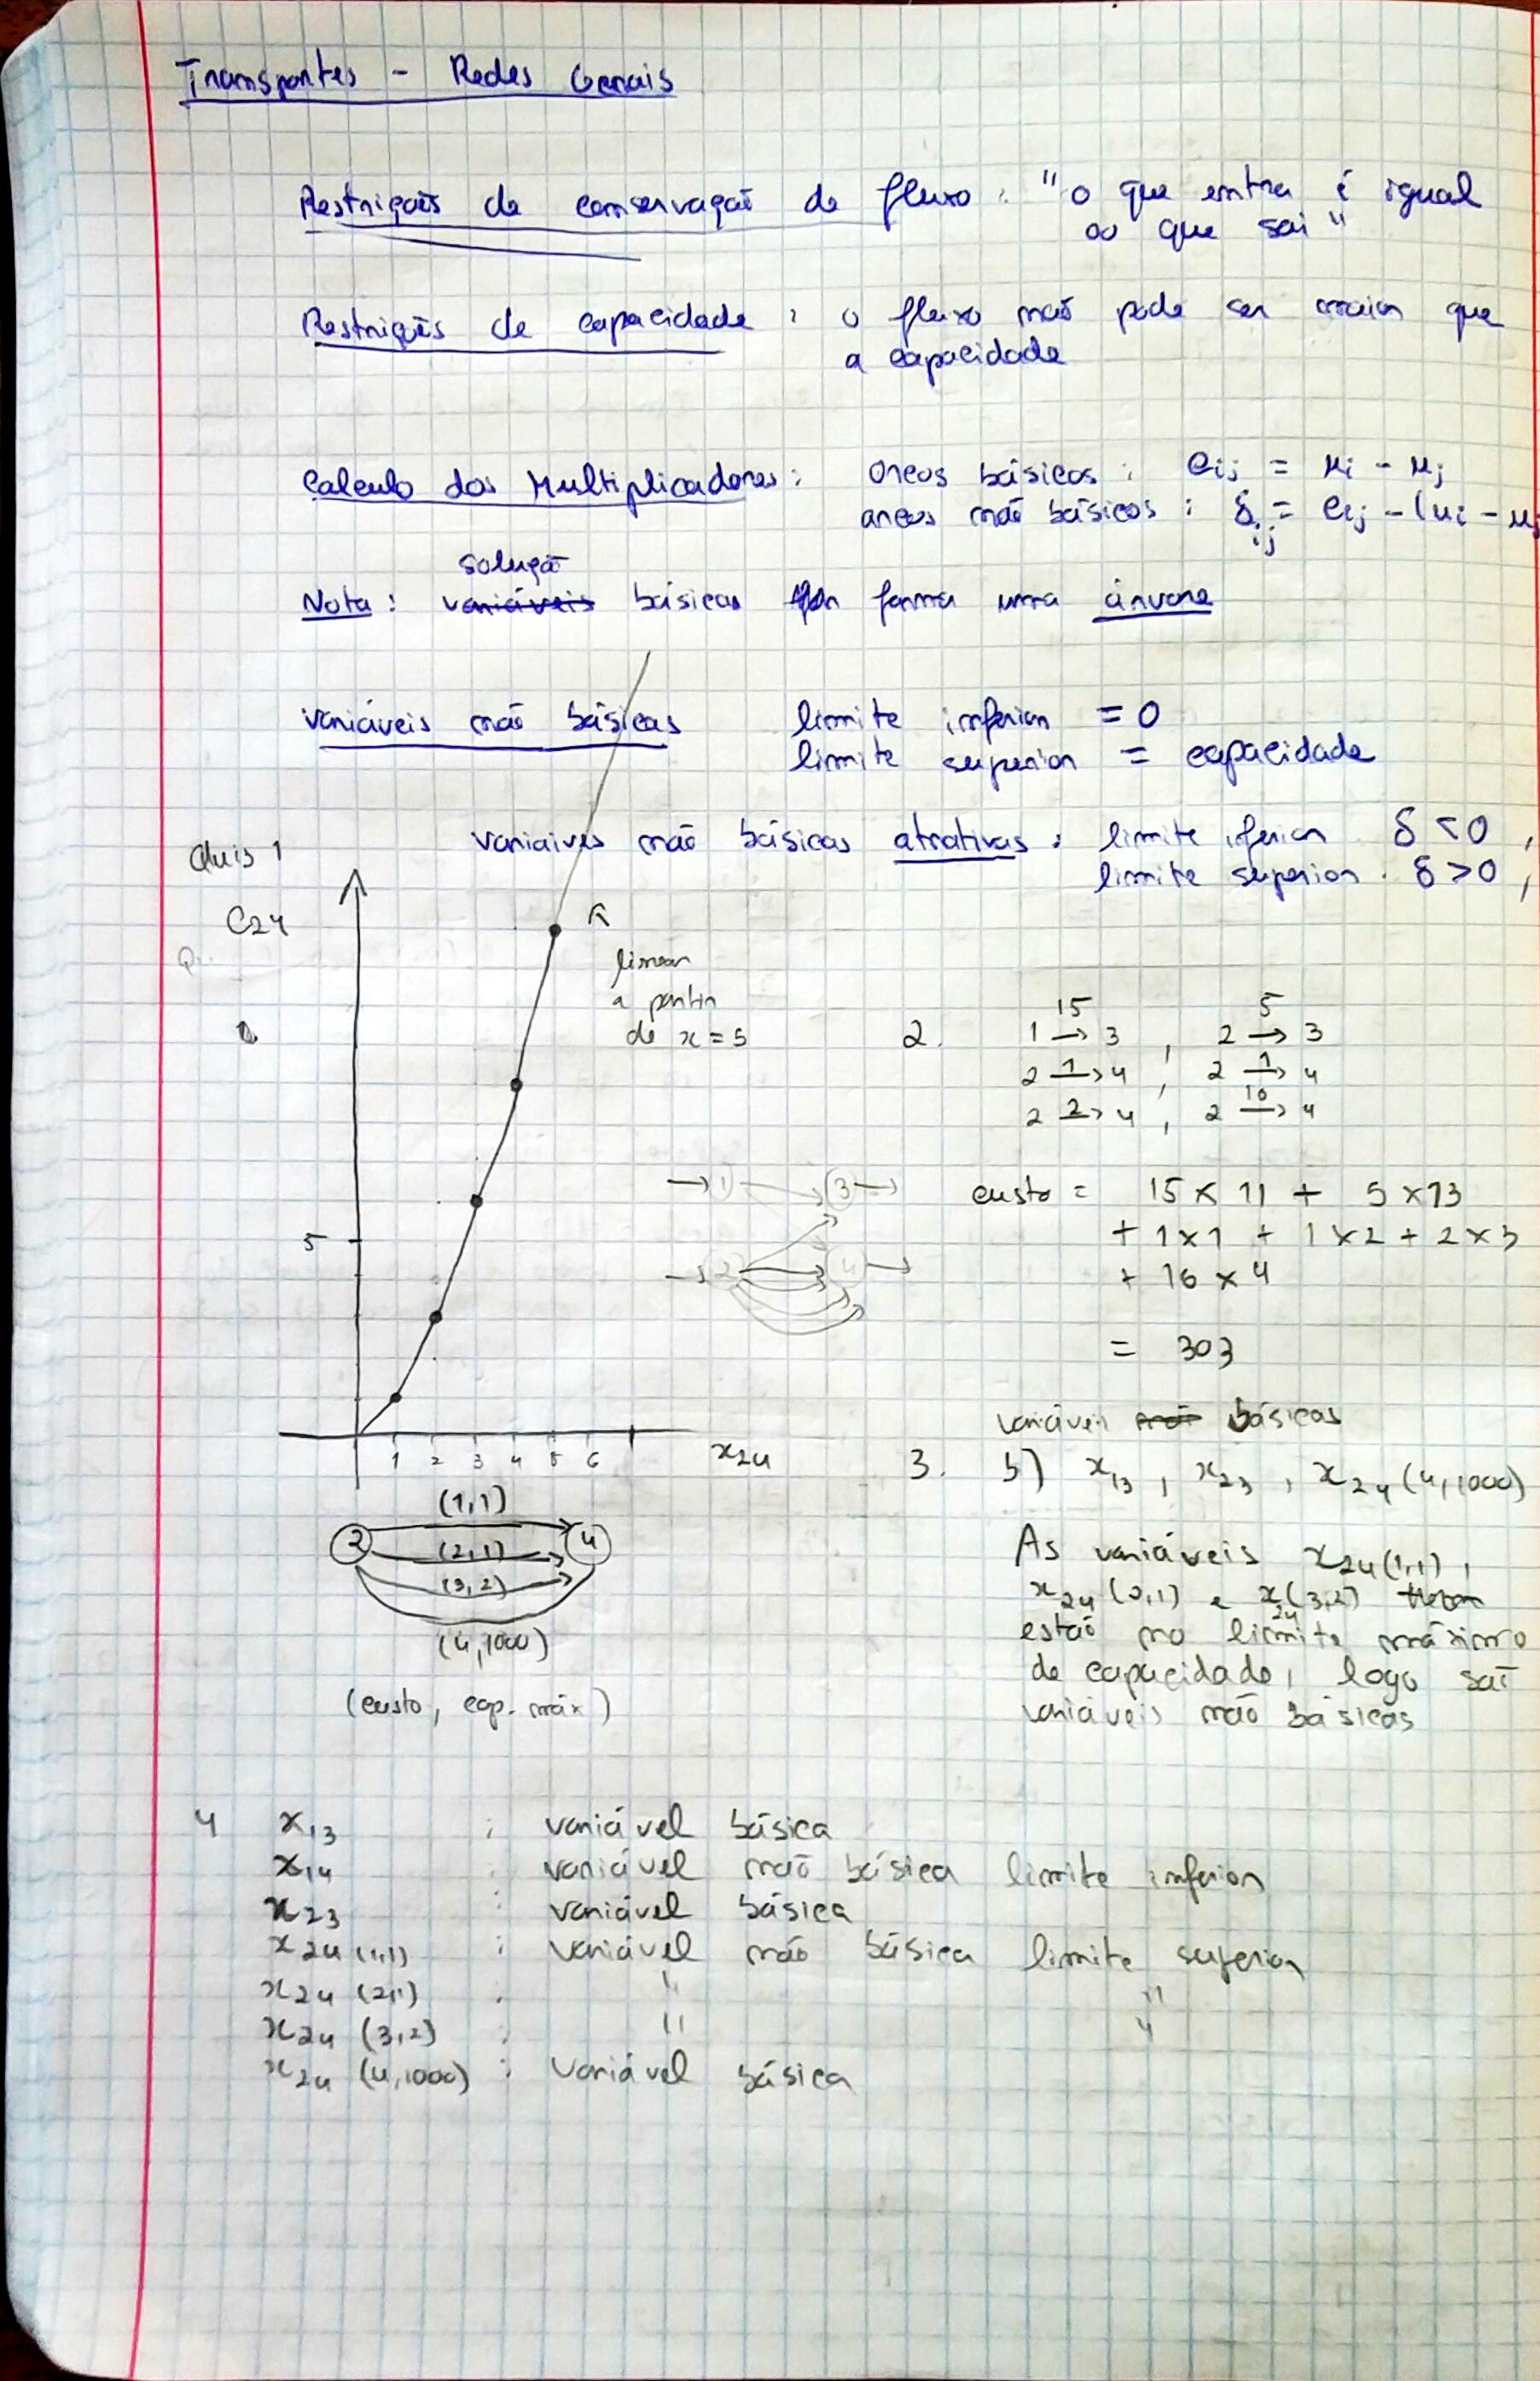 Transportes - Redes Gerais
Restrições de conservação de fluxo : "o que entra é igual
ao que sai"
Restrições de capacidade : o fluxo não pode ser maior que
a capacidade
Calculo dos Multiplicadores : arcos básicos : cij = ui - uj
arcos não básicos : δij = cij - (ui - uj
solução
Nota : variáveis básicas forma uma árvore
variáveis não básicas limite inferior = 0
limite superior = capacidade
variaives não básicas atrativas : limite iferior δ < 0 ,
limite superior . δ > 0 ,
Quis 1
C24
linear
a partir
de x = 5
5
1 2 3 4 5 6
x24
(1,1)
2 (2,1) 4
(3,2)
(4,1000)
(custo, cap. máx)
2. 1 15→ 3 , 2 5→ 3
2 1→ 4 , 2 1→ 4
2 2→ 4 , 2 16→ 4
→ 1 3 →
→ 2 4 →
custo = 15 × 11 + 5 × 13
+ 1×1 + 1×2 + 2×3
+ 16 × 4
= 303
variáveis não básicas
3. b) x13 , x23 , x24 (4,1000)
As variáveis x24(1,1) ,
x24 (2,1) e x24(3,2)
estão no limite máximo
de capacidade, logo sao
variáveis não básicas
4 x13 : variável básica
x14 : variável não básica limite inferior
x23 : variável básica
x24 (1,1) : variável não básica limite superior
x24 (2,1) : " "
x24 (3,2) : " "
x24 (4,1000) : variável básica